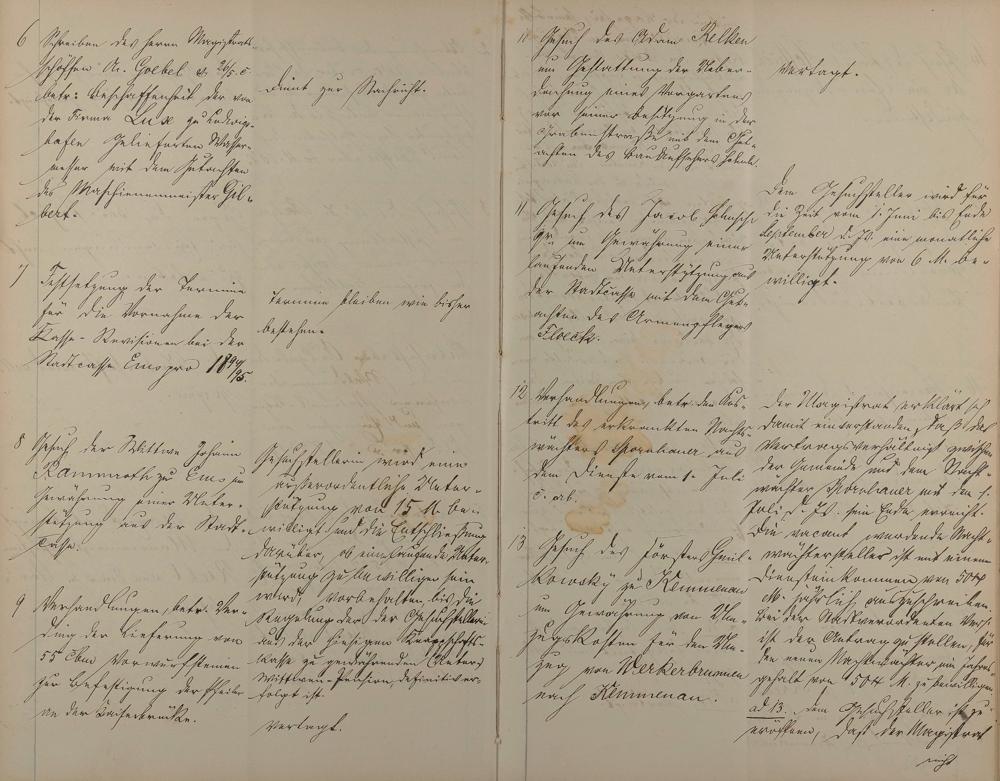 6 Schreiben des Herrn Magistrats-
schöffen Dr. Goebel v. 26/5. c.
betr: Beschaffenheit der von
der Firma Lux zu Ludwigs-
hafen gelieferten Wasser-
messer mit dem Gutachten
des Maschienenmeister Gil-
bert.
dient zur Nachricht.
7 Festsetzung der Termine
für die Vornahme der
Kasse-Revisionen bei der
Stadtcasse Ems pro 1894/95.
Termine bleiben wie bisher
bestehen.
8 Gesuch der Wittwe Johann
Kammroth zu Ems um
Gewährung einer Unter-
stützung aus der Stadt-
casse.
Gesuchstellerin wird eine
außerordentliche Unter-
stützung von 15 M. be-
willigt und die Entschließung
darüber, ob eine laufende Unter-
stützung zu bewilligen sein
wird, vorbehalten bis die
Regelung der der Gesuchstellerin
aus der hiesigen
kasse zu gewährenden
Wittwen-Pension, definitiv er-
folgt ist.
9 Verhandlungen, betr. Ver-
ding der Lieferung von
55 cbm Vorwurfsteinen
zur Befestigung der Pfeiler
an der Kaiserbrücke.
vertagt.
Gesuch des Adam Relken
um Gestattung der Ueber-
dachung eines Vorgartens
vor seiner Besitzung in der
Grabenstraße mit dem Gut-
achten des Bauaufsehers
vertagt.
11 Gesuch des Jacob
um Gewährung einer
laufenden Unterstützung aus
der Stadtcasse mit dem Gut-
achten des Armenpflegers
Floeck.
Dem Gesuchsteller wird für
die Zeit vom 1. Juni bis Ende
September d. Js. eine monatliche
Unterstützung von 6 M. be-
willigt.
12 Verhandlungen, betr. den Aus-
tritt des erkrankten Nacht-
wächters aus
dem Dienste vom 1. Juli
c. ab.
Der Magistrat erklärt sich
damit einverstanden, daß das
Vertragsverhältniß zwischen
der Gemeinde und dem Nacht-
wächter mit dem 1.
Juli d. Js. sein Ende erreicht.
Die vacant werdende Nacht-
wächterstelle ist mit einem
Diensteinkommen von 504
M. jährlich auszuschreiben.
Bei der Stadtverordneten Vers.
ist der Antrag zu stellen, für
den neuen Nachtwächter ein Jahres-
gehalt von 504 M. zu bewilligen.
13 Gesuch des Försters
zu Kemmenau
um Gewährung von Um-
zugskosten für den Um-
zug von Werkerbrunnen
nach Kemmenau.
ad 13. Dem Gesuchsteller ist zu
eröffnen, daß der Magistrat
nicht